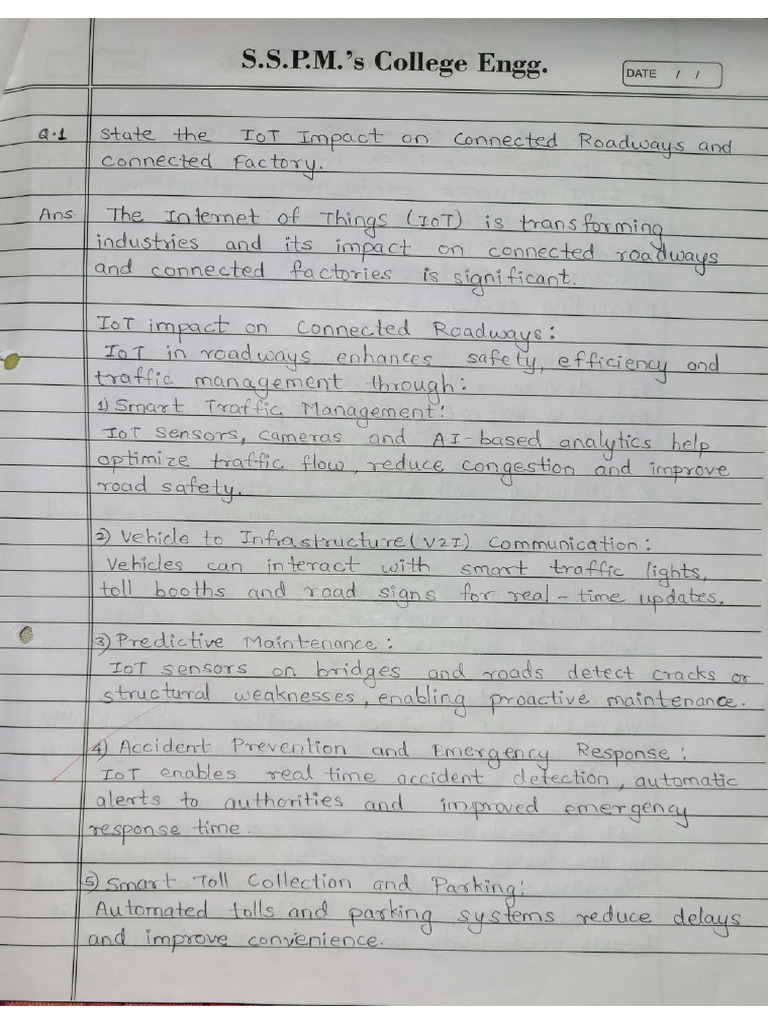 S.S.P.M.'s College Engg.
DATE / /
Q.1 State the IoT Impact on Connected Roadways and
connected Factory.
Ans The Internet of Things (IoT) is transforming
industries and its impact on connected roadways
and connected factories is significant.
IoT impact on Connected Roadways:
IoT in roadways enhances safety, efficiency and
traffic management through:
1) Smart Traffic Management:
IoT sensors, cameras and AI-based analytics help
optimize traffic flow, reduce congestion and improve
road safety.
2) Vehicle to Infrastructure (V2I) Communication:
Vehicles can interact with smart traffic lights,
toll booths and road signs for real-time updates.
3) Predictive Maintenance:
IoT sensors on bridges and roads detect cracks or
structural weaknesses, enabling proactive maintenance.
4) Accident Prevention and Emergency Response:
IoT enables real time accident detection, automatic
alerts to authorities and improved emergency
response time.
5) Smart Toll Collection and Parking:
Automated tolls and parking systems reduce delays
and improve convenience.